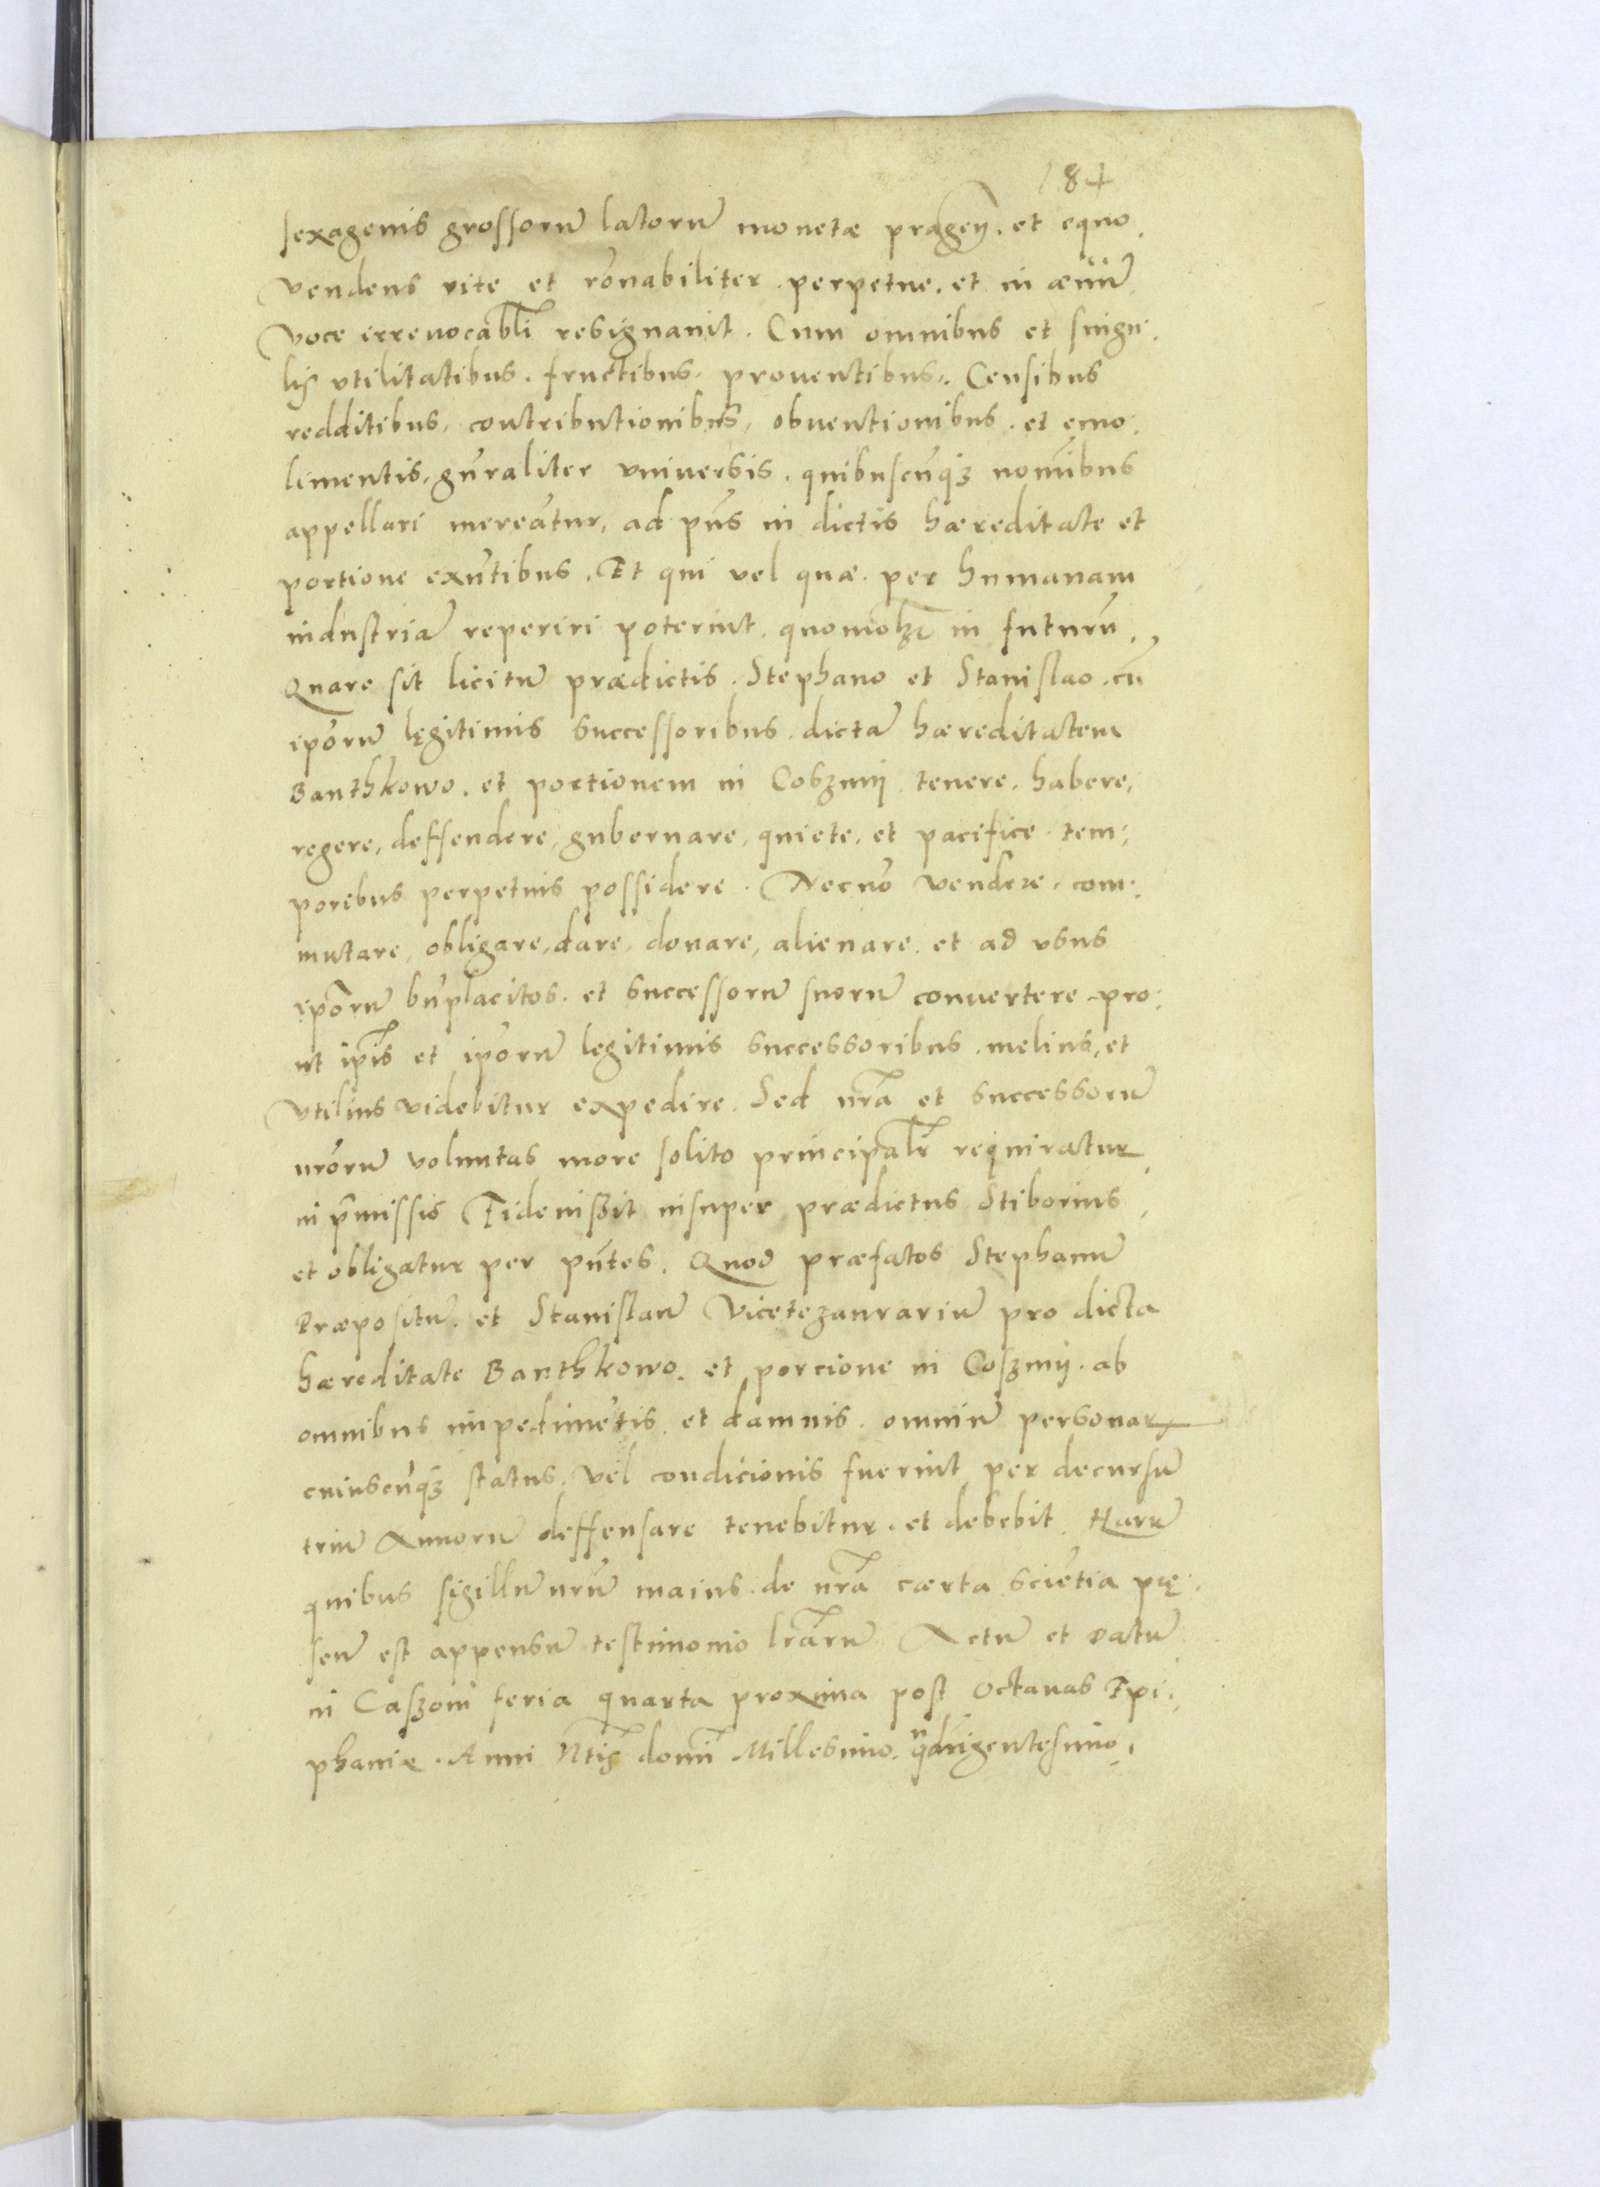 184
sexagenis grossorū latorū monetæ pragen̄. et equo.
vendens rite et rōnabiliter. perpetue. et in æuū
voce irreuocabl̄i resignauit. Cum omnibus et singu:
lis vtilitatibus. fructibus. prouentibus. Censibus
redditibus, contributionibus, obuentionibus. et emo:
limentis, gn̄raliter vniuersis. quibuscūqȝ nomībus
appellari mereātur, ad pn̄s in dictis hæreditate et
portione exn̄tibus. Et qui vel quæ. per humanam
industriā reperiri poterint. quomolȝ in futurū.
Quare sit licitū prædictis. Stephano et Stanislao. cū
ip̄orū lęgitimis successoribus. dictā hæreditatem
Banthkowo. et portionem in Cobzmij tenere. habere,
regere, deffendere, gubernare, quiete, et pacifice. tem:
poribus perpetuis possidere. Necnō vendere. com:
mutare, obligare, dare, donare, alienare. et ad vsus
ip̄orū bn̄placitos. et successorū suorū conuertere. pro:
ut ip̄is et ip̄orū legitimis successoribus. melius, et
vtilius videbitur expedire. Sed nr̄a et successorū
nr̄orū voluntas more solito principalr̄ requiratur
in p̄missis Fideiussit insuper prædictus Stiborius,
et obligatur per pn̄tes. Quod præfatos Stephanū
Præpositū. et Stanislaū Vicetezaurariū pro dicta
hæreditate Banthkowo. et porcione in Coszmij. ab
omnibus impedimētis. et damnis. omniū personaꝝ
cuiuscūqȝ status. vel condicionis fuerint per decursū
triū Annorū deffensare tenebitur. et debebit Harū
quibus sigillū nr̄ū maius. de nr̄a cærta sciētia prę:
sen̄ est appensū testimonio lr̄arū Actū et datū
in Caszom̄ feria quarta proxima post Octauas Epi:
phaniæ. Anni Ntis̄ domī Millesimo. quadringentesimo.